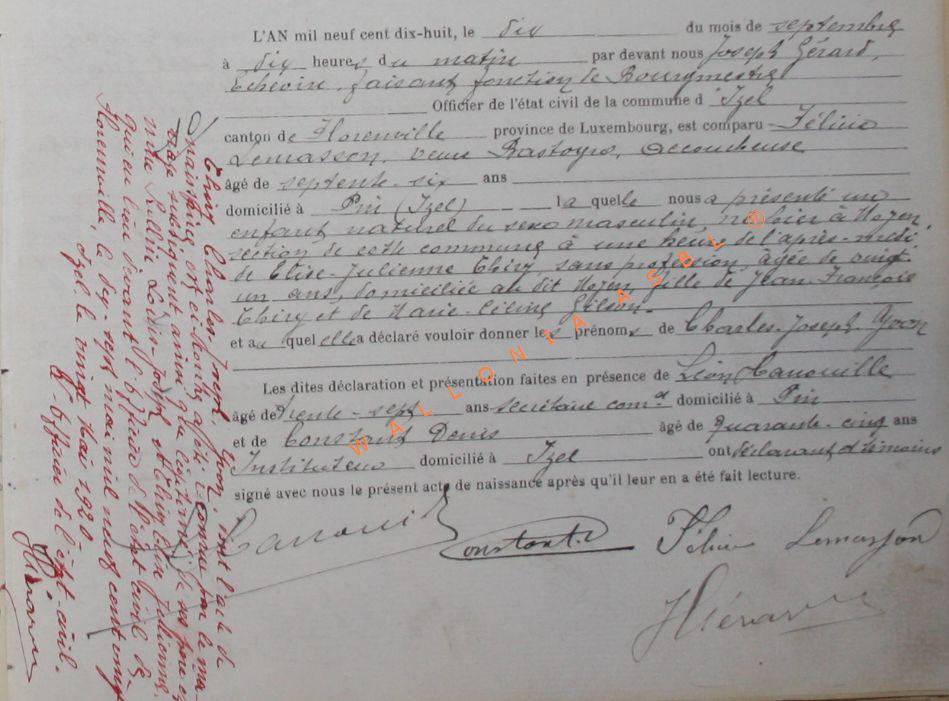 L'AN mil neuf cent dix-huit, le dix du mois de septembre
à dix heures du matin par devant nous Joseph Gérard,
Echevin, faisant fonction de Bourgmestre
Officier de l'état civil de la commune d'Izel
canton de Florenville province de Luxembourg, est comparu Félicie
Lemasson, veuve Rastoys, accoucheuse
âgé de septente-six ans
domicilié à Pin (Izel) laquelle nous a présenté un
enfant naturel du sexe masculin, né hier à Moyen
section de cette commune à une heure de l'après-midi
de Elise-Julienne Thiry, sans profession, âgée de vingt
un ans, domiciliée au dit Moyen, fille de Jean-François
Thiry et de Marie-Céline Gilson.
et auquel elle a déclaré vouloir donner les prénoms de Charles-Joseph-Yvon
Les dites déclaration et présentation faites en présence de Léon Hanouille
âgé de trente-sept ans secrétaire comal domicilié à Pin
et de Constant Denis âgé de Quarante-cinq ans
Instituteur domicilié à Izel ont déclarant et témoins
signé avec nous le présent acte de naissance après qu'il leur en a été fait lecture.
Constant
Félicie Lemasson
JGérard
WALLONIA ASBL ®
Thiry Charles, Joseph, Yvon, dont l'acte de
naissance est ci-contre, a été reconnu par le ma-
riage subséquent
Julienne,
qui eu lieu devant l'officier de l'état civil de
Florenville, le dix-sept mai mil neuf cent vingt
Izel le vingt mai 1920
L'officier de l'état-civil.
JGérard